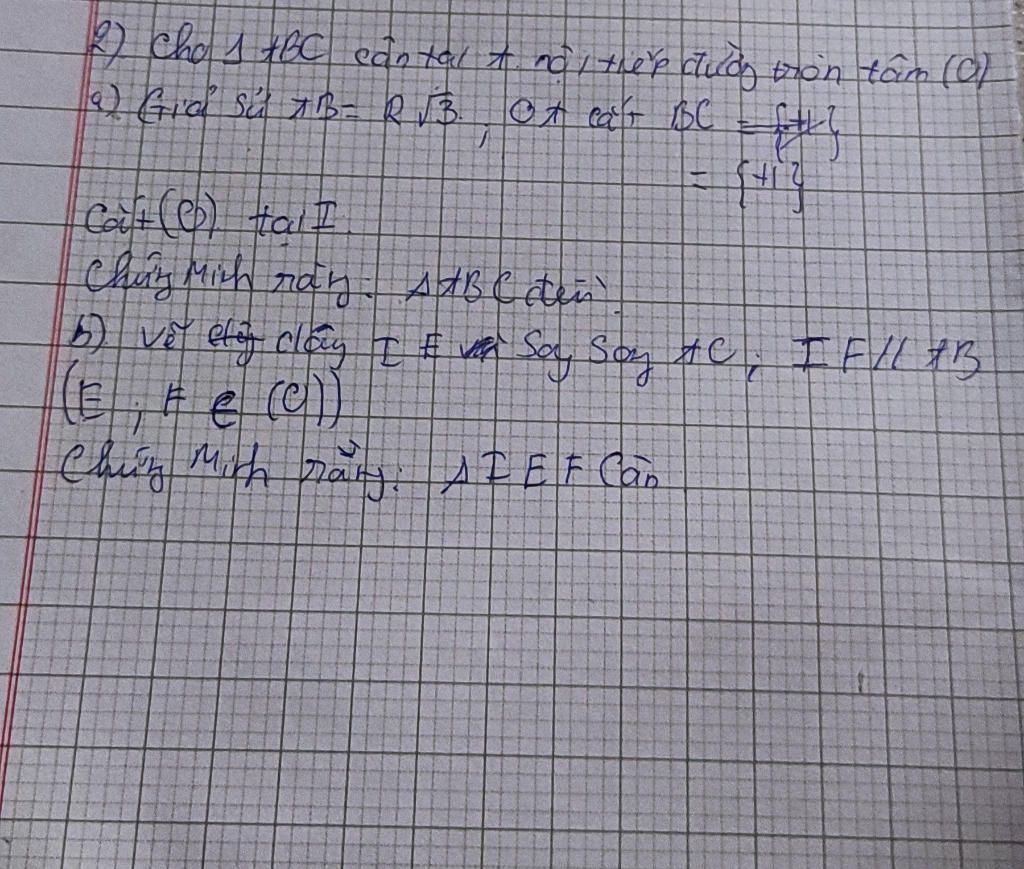 2) Cho Δ ABC cân tại A nội tiếp đường tròn tâm (O)
a) Giả sử AB = R√3, OA cắt BC = {H}
= {H}
cắt (O) tại I.
Chứng Minh rằng: Δ ABC đều
b) Vẽ dây IE Soy Soy AC; IF // AB
(E; F ∈ (O))
Chứng Minh rằng: Δ IEF Cân